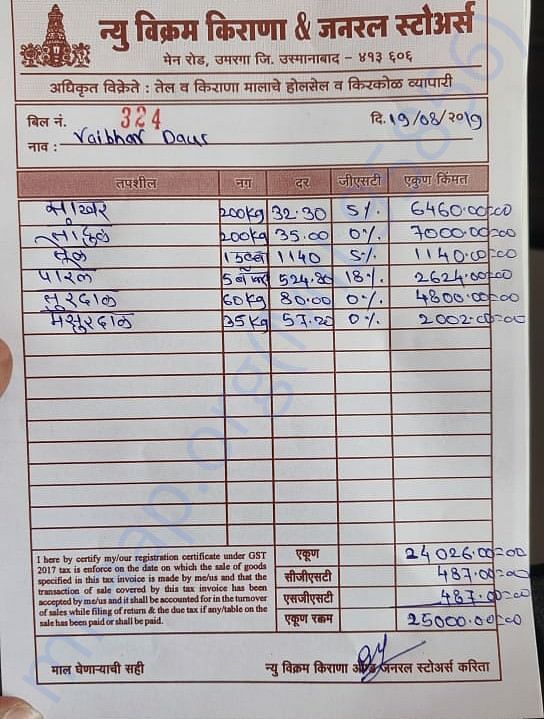 न्यु विक्रम किराणा & जनरल स्टोअर्स
मेन रोड, उमरगा जि. उस्मानाबाद - ४१३ ६०६
अधिकृत विक्रेते : तेल व किराणा मालाचे होलसेल व किरकोळ व्यापारी
बिल नं. 324 दि. 19/08/2019
नाव : Vaibhav
तपशील नग दर जीएसटी एकुण किंमत
साखर 200kg 32.30 5% 6460.00=00
200kg 35.00 0% 7000.00=00
तेल 1 1140 5% 1140.00=00
पारले 5 524.80 18% 2624.00=00
तुरदाळ 60kg 80.00 0% 4800.00=00
मसुरदाळ 35kg 57.20 0% 2002.00=00
I here by certify my/our registration certificate under GST
2017 tax is enforce on the date on which the sale of goods
specified in this tax invoice is made by me/us and that the
transaction of sale covered by this tax invoice has been
accepted by me/us and it shall be accounted for in the turnover
of sales while filing of return & the due tax if any/table on the
sale has been paid or shall be paid.
एकूण 24026.00=00
सीजीएसटी 487.00=00
एसजीएसटी 487.00=00
एकूण रक्कम 25000.00=00
माल घेणाऱ्याची सही न्यु विक्रम किराणा अॅण्ड जनरल स्टोअर्स करिता